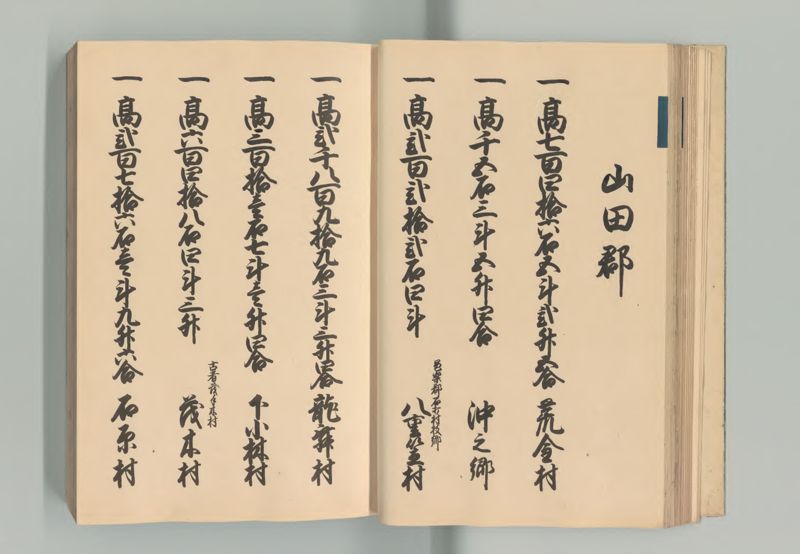 山田郡
一 高七百四拾六石五斗弐升五合 荒金村
一 高千五石三斗五升四合 沖之郷
邑楽郡石打村枝郷
一 高弐百弐拾弐石四斗 八重笠村
一 高弐千八百九拾九石三斗三升四合 龍舞村
一 高三百拾壱石七斗壱升四合 下小林村
古者茂手木村
一 高六百四拾八石四斗三升 茂木村
一 高弐百七拾六石壱斗九升六合 石原村